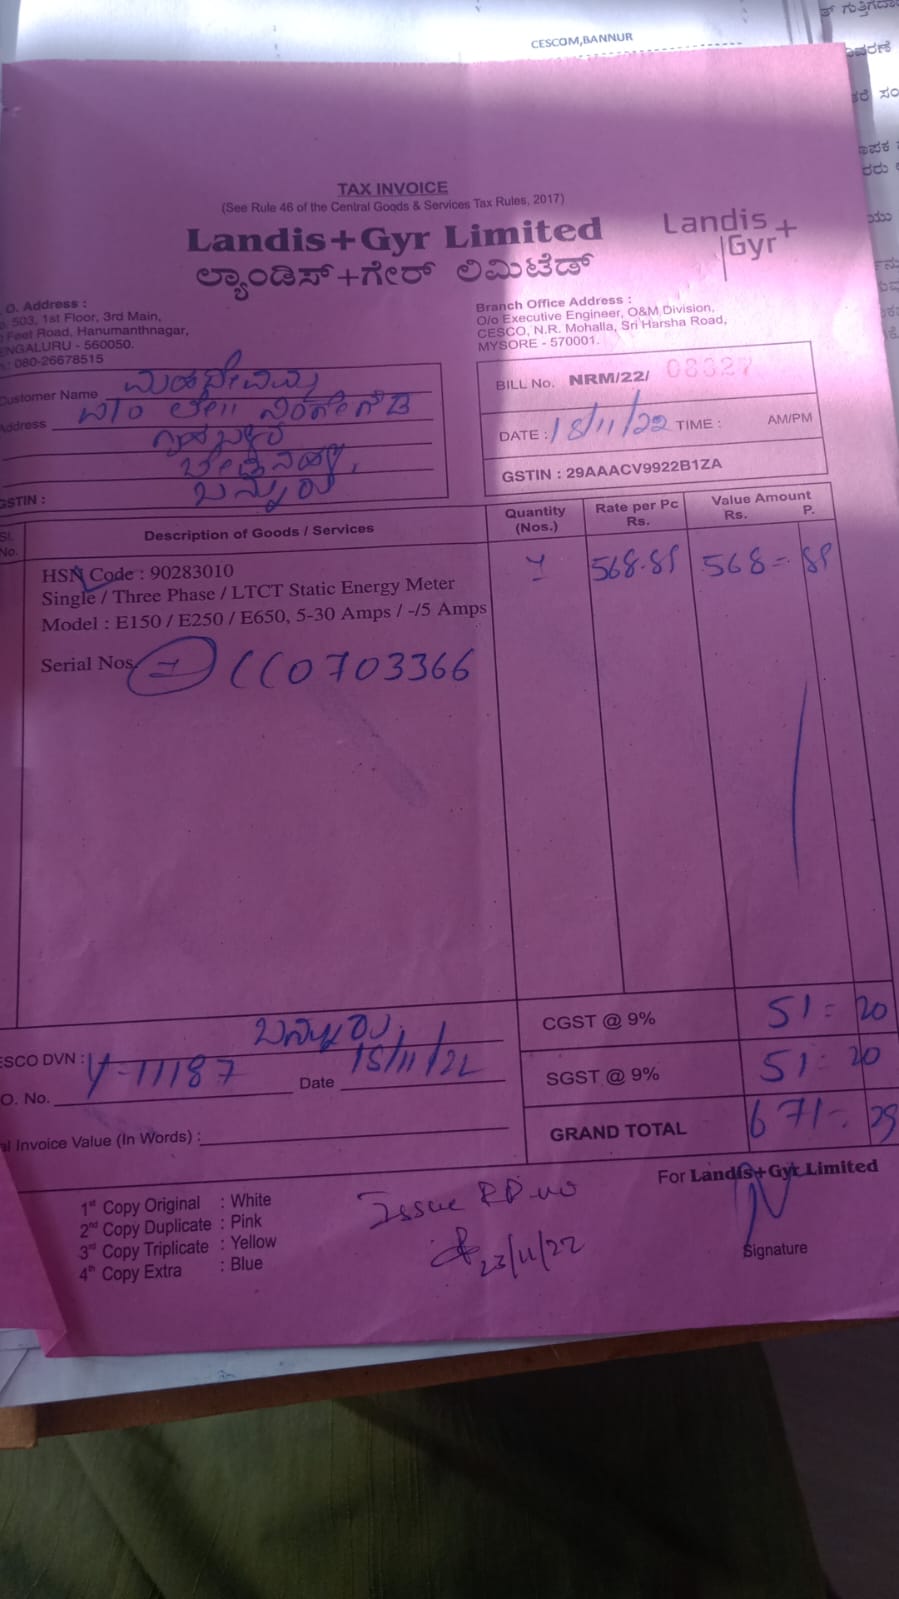 CESCOM,BANNUR
TAX INVOICE
(See Rule 46 of the Central Goods & Services Tax Rules, 2017)
Landis+Gyr Limited
Landis+
Gyr
ಲ್ಯಾಂಡಿಸ್+ಗೇರ್ ಲಿಮಿಟೆಡ್
O. Address :
503, 1st Floor, 3rd Main,
Feet Road, Hanumanthnagar,
ENGALURU - 560050.
: 080-26678515
Branch Office Address :
O/o Executive Engineer, O&M Division,
CESCO, N.R. Mohalla, Sri Harsha Road,
MYSORE - 570001.
Customer Name ಮಹದೇವಮ್ಮ
Address
ಬನ್ನೂರು
GSTIN :
BILL No. NRM/22/ 08327
DATE : 15/11/22 TIME : AM/PM
GSTIN : 29AAACV9922B1ZA
Sl. No. Description of Goods / Services Quantity (Nos.) Rate per Pc Rs. Value Amount Rs. P.
HSN Code : 90283010 1 568.89 568= 89
Single / Three Phase / LTCT Static Energy Meter
Model : E150 / E250 / E650, 5-30 Amps / -/5 Amps
Serial Nos. 1 0703366
CGST @ 9% 51= 20
ESCO DVN : ಬನ್ನೂರು
SGST @ 9% 51= 20
O. No. Y-11187 Date 15/11/22
GRAND TOTAL 671= 29
al Invoice Value (In Words) :
For Landis+Gyr Limited
1st Copy Original : White
2nd Copy Duplicate : Pink
3rd Copy Triplicate : Yellow
4th Copy Extra : Blue
Issue RR no
23/11/22
Signature